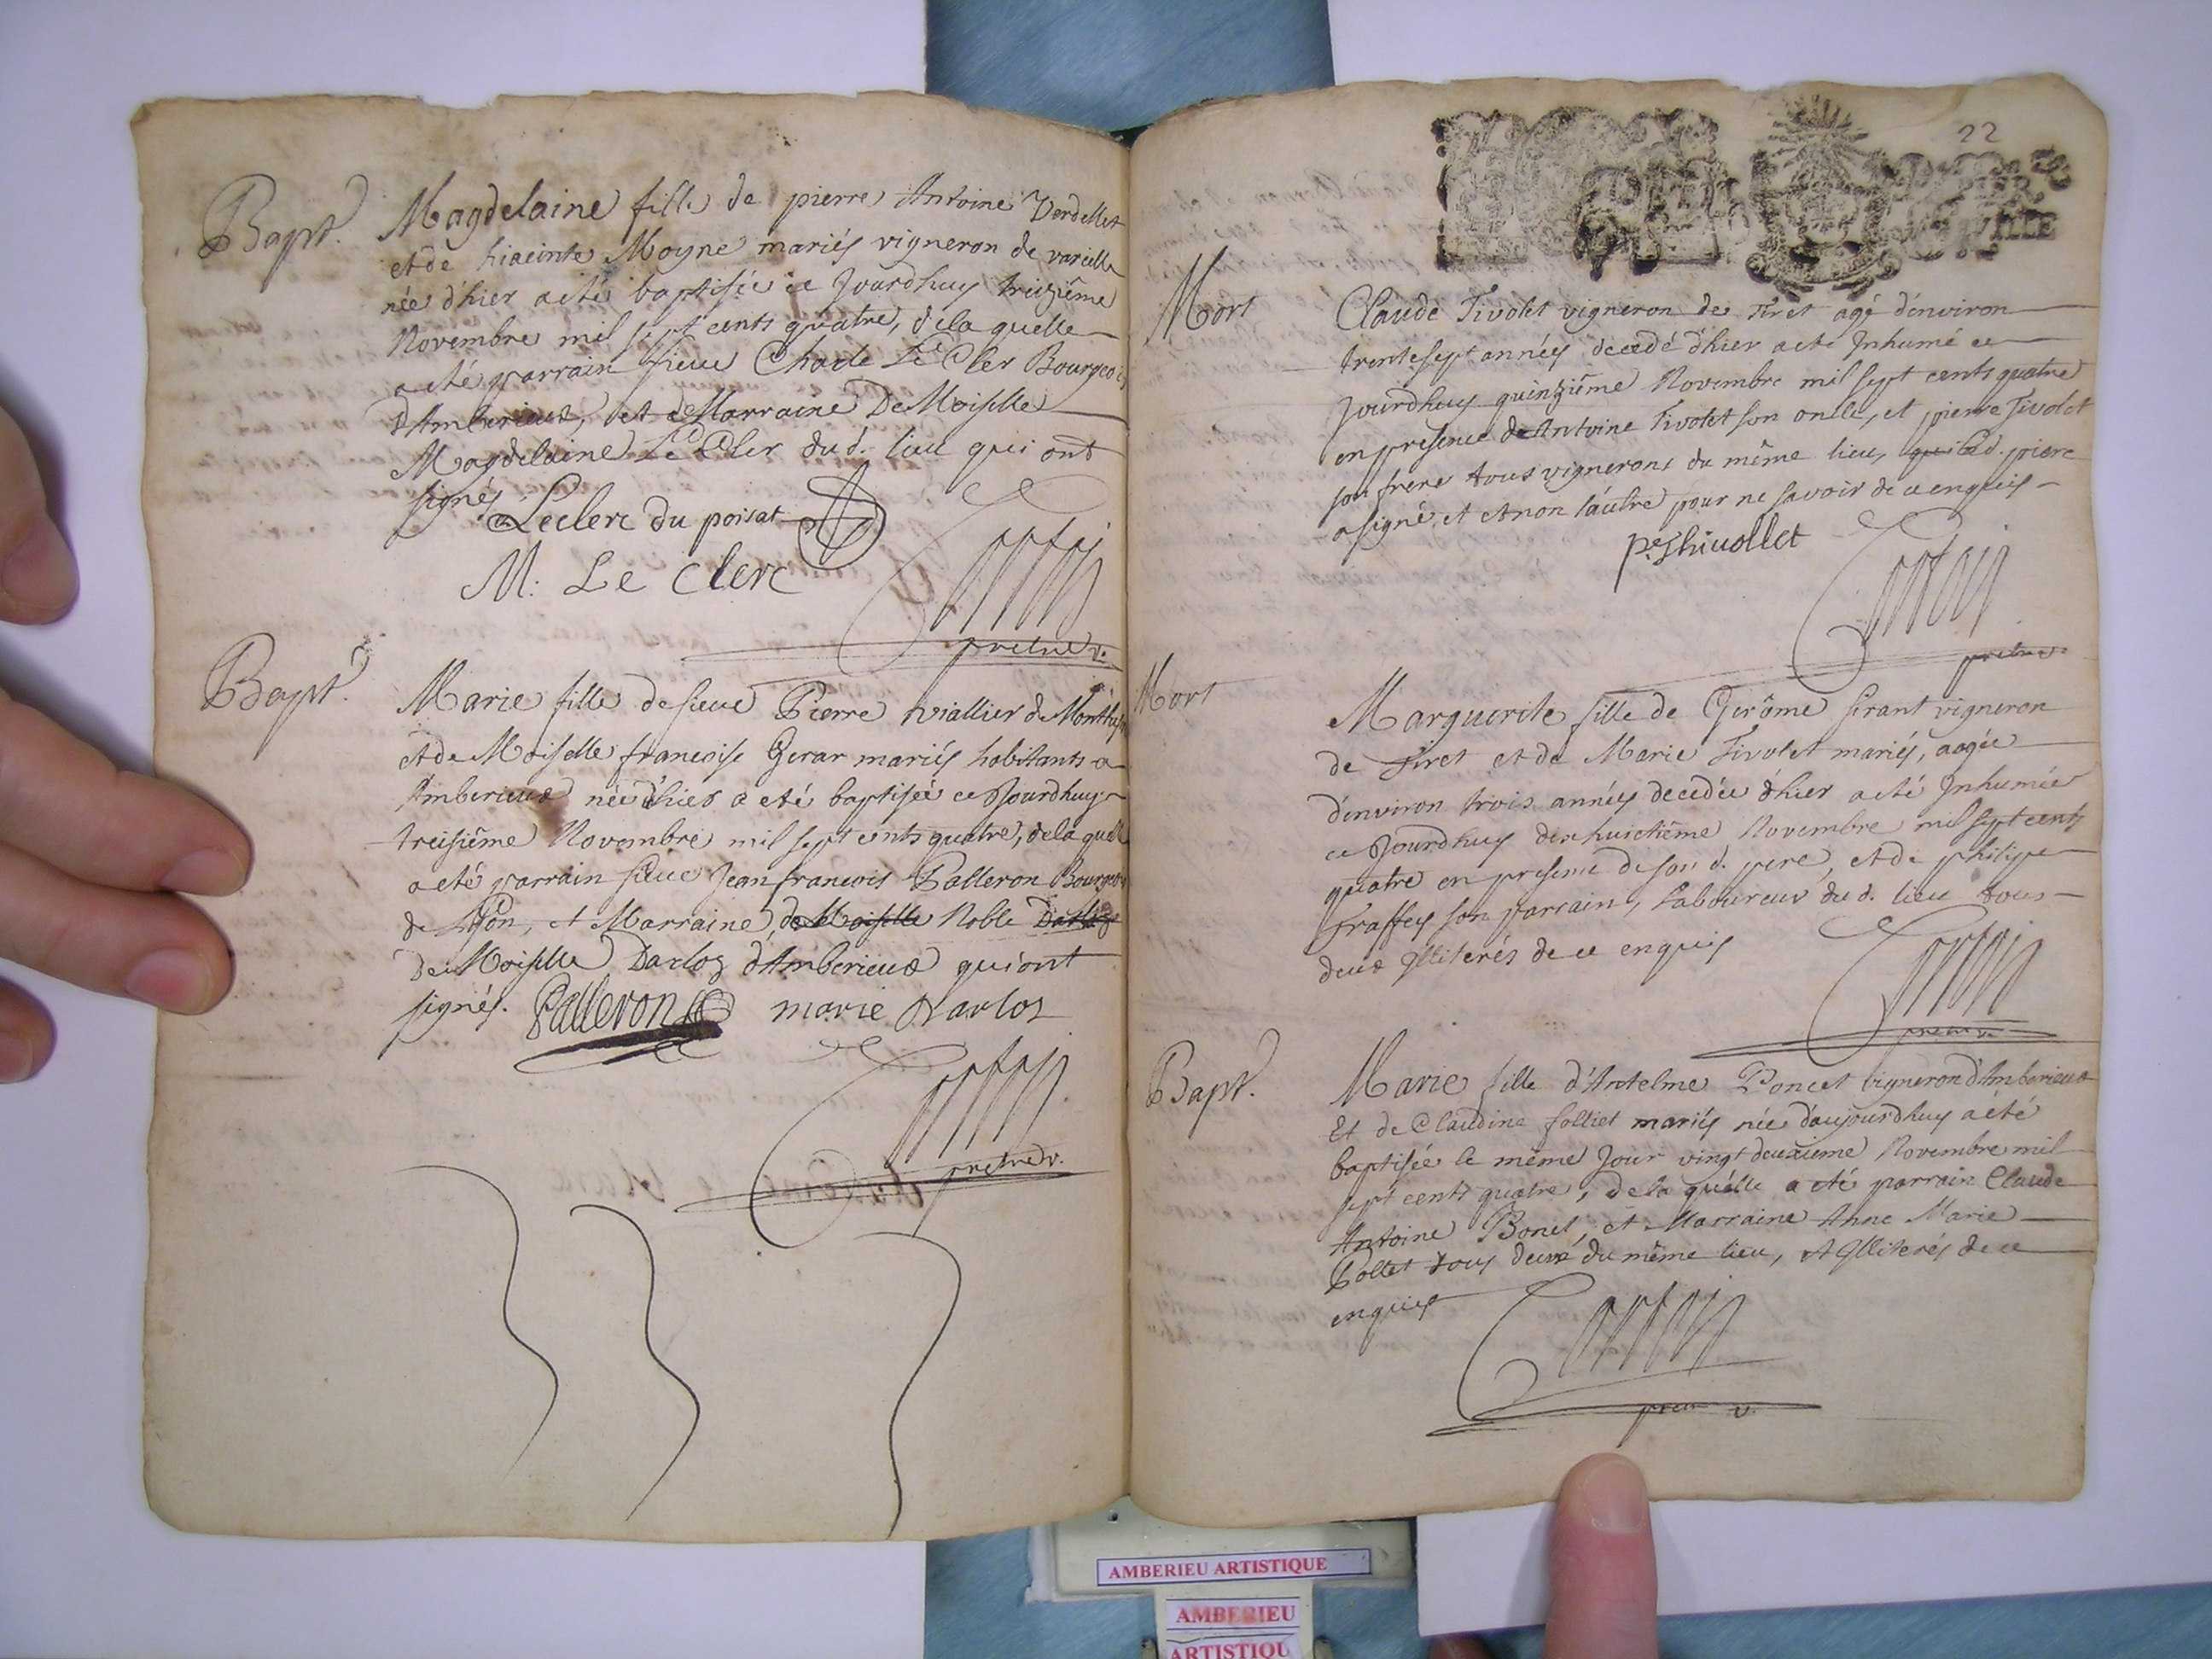 Bapt.
Magdelaine fille de pierre Antoine Verdellet
et de hiacinte Moyne mariés vigneron de vareille
née d'hier a eté baptisée ce Jourdhuy treizième
Novembre mil sept cents quatre, de la quelle
a eté parrain sieur Charle Le Cler Bourgeois
d'Amberieux, et Marraine DeMoiselle
Magdelaine Le Cler dud. lieu qui ont
signés
Leclerc du poisat
M: Le Clerc
pretre v.
Bapt.
Marie fille de sieur Pierre vialier de
et de Moiselle francoise Gerar mariés habitants a
Amberieux née d'hier a eté baptisée ce Jourdhuy
treisième Novembre mil sept cents quatre, de la quelle
a eté parrain sieur Jean francois Palleron Bourgeois
de et Marraine, de Moiselle Noble Darloz
DeMoiselle Darloz d'Amberieux qui ont
signés. Palleron marie Darloz
pretre v.
22
Mort
Claude Tivolet vigneron de Tiret agé d'environ
trente sept années decedé d'hier a eté Inhumé ce
Jourdhuy quinzième Novembre mil sept cents quatre
en presence de Antoine Tivolet son oncle, et pierre Tivolet
son frere tous vignerons du même lieu, qui led. piere
a signé, et et non l'autre pour ne savoir de ce enquis
pe. Thiuollet
pretre v.
Mort
Marguerite fille de Gerôme Sirant vigneron
de Tiret et de Marie Tivolet mariés, aagée
d'environ trois années decedée d'hier a eté Inhumée
ce Jourdhuy dix huictième Novembre mil sept cents
quatre en presence de son d. pere, et de philippe
Traffey son parrain, Laboureur dud. lieu tous
deux Illiterés de ce enquis
pretre v.
Bapt.
Marie fille d'Antelme Poncet vigneron d'Amberieux
Et de Claudine folliet mariés née d'aujourdhuy a été
baptisée le même Jour vingt deuxième Novembre mil
sept cents quatre, de la quelle a eté parrain Claude
Antoine Bonet, et Marraine Anne Marie
Pollet tous deux du même lieu, et Illiterés de ce
enquis
pretre v.
AMBERIEU ARTISTIQUE
AMBERIEU
ARTISTIQU